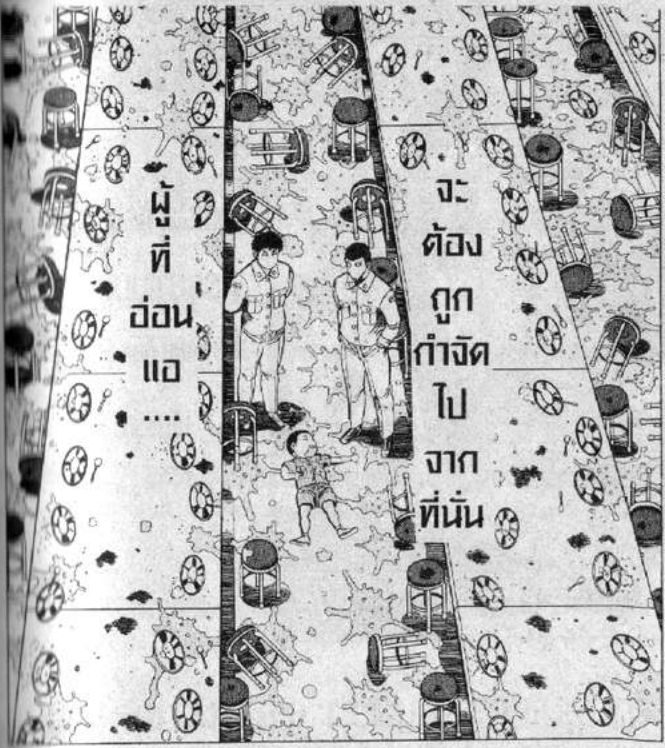 ผู้
ที่
อ่อน
แอ
....
จะ
ต้อง
ถูก
กำจัด
ไป
จาก
ที่นั่น